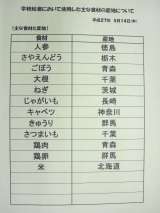 学校給食において使用した主な食材の産地について
平成27年 5月14日(木)
(主な食材の産地)
食材 産地
人参 徳島
さやえんどう 栃木
ごぼう 青森
大根 千葉
ねぎ 茨城
じゃがいも 長崎
キャベツ 神奈川
きゅうり 群馬
さつまいも 千葉
鶏肉 青森
鶏卵 群馬
米 北海道